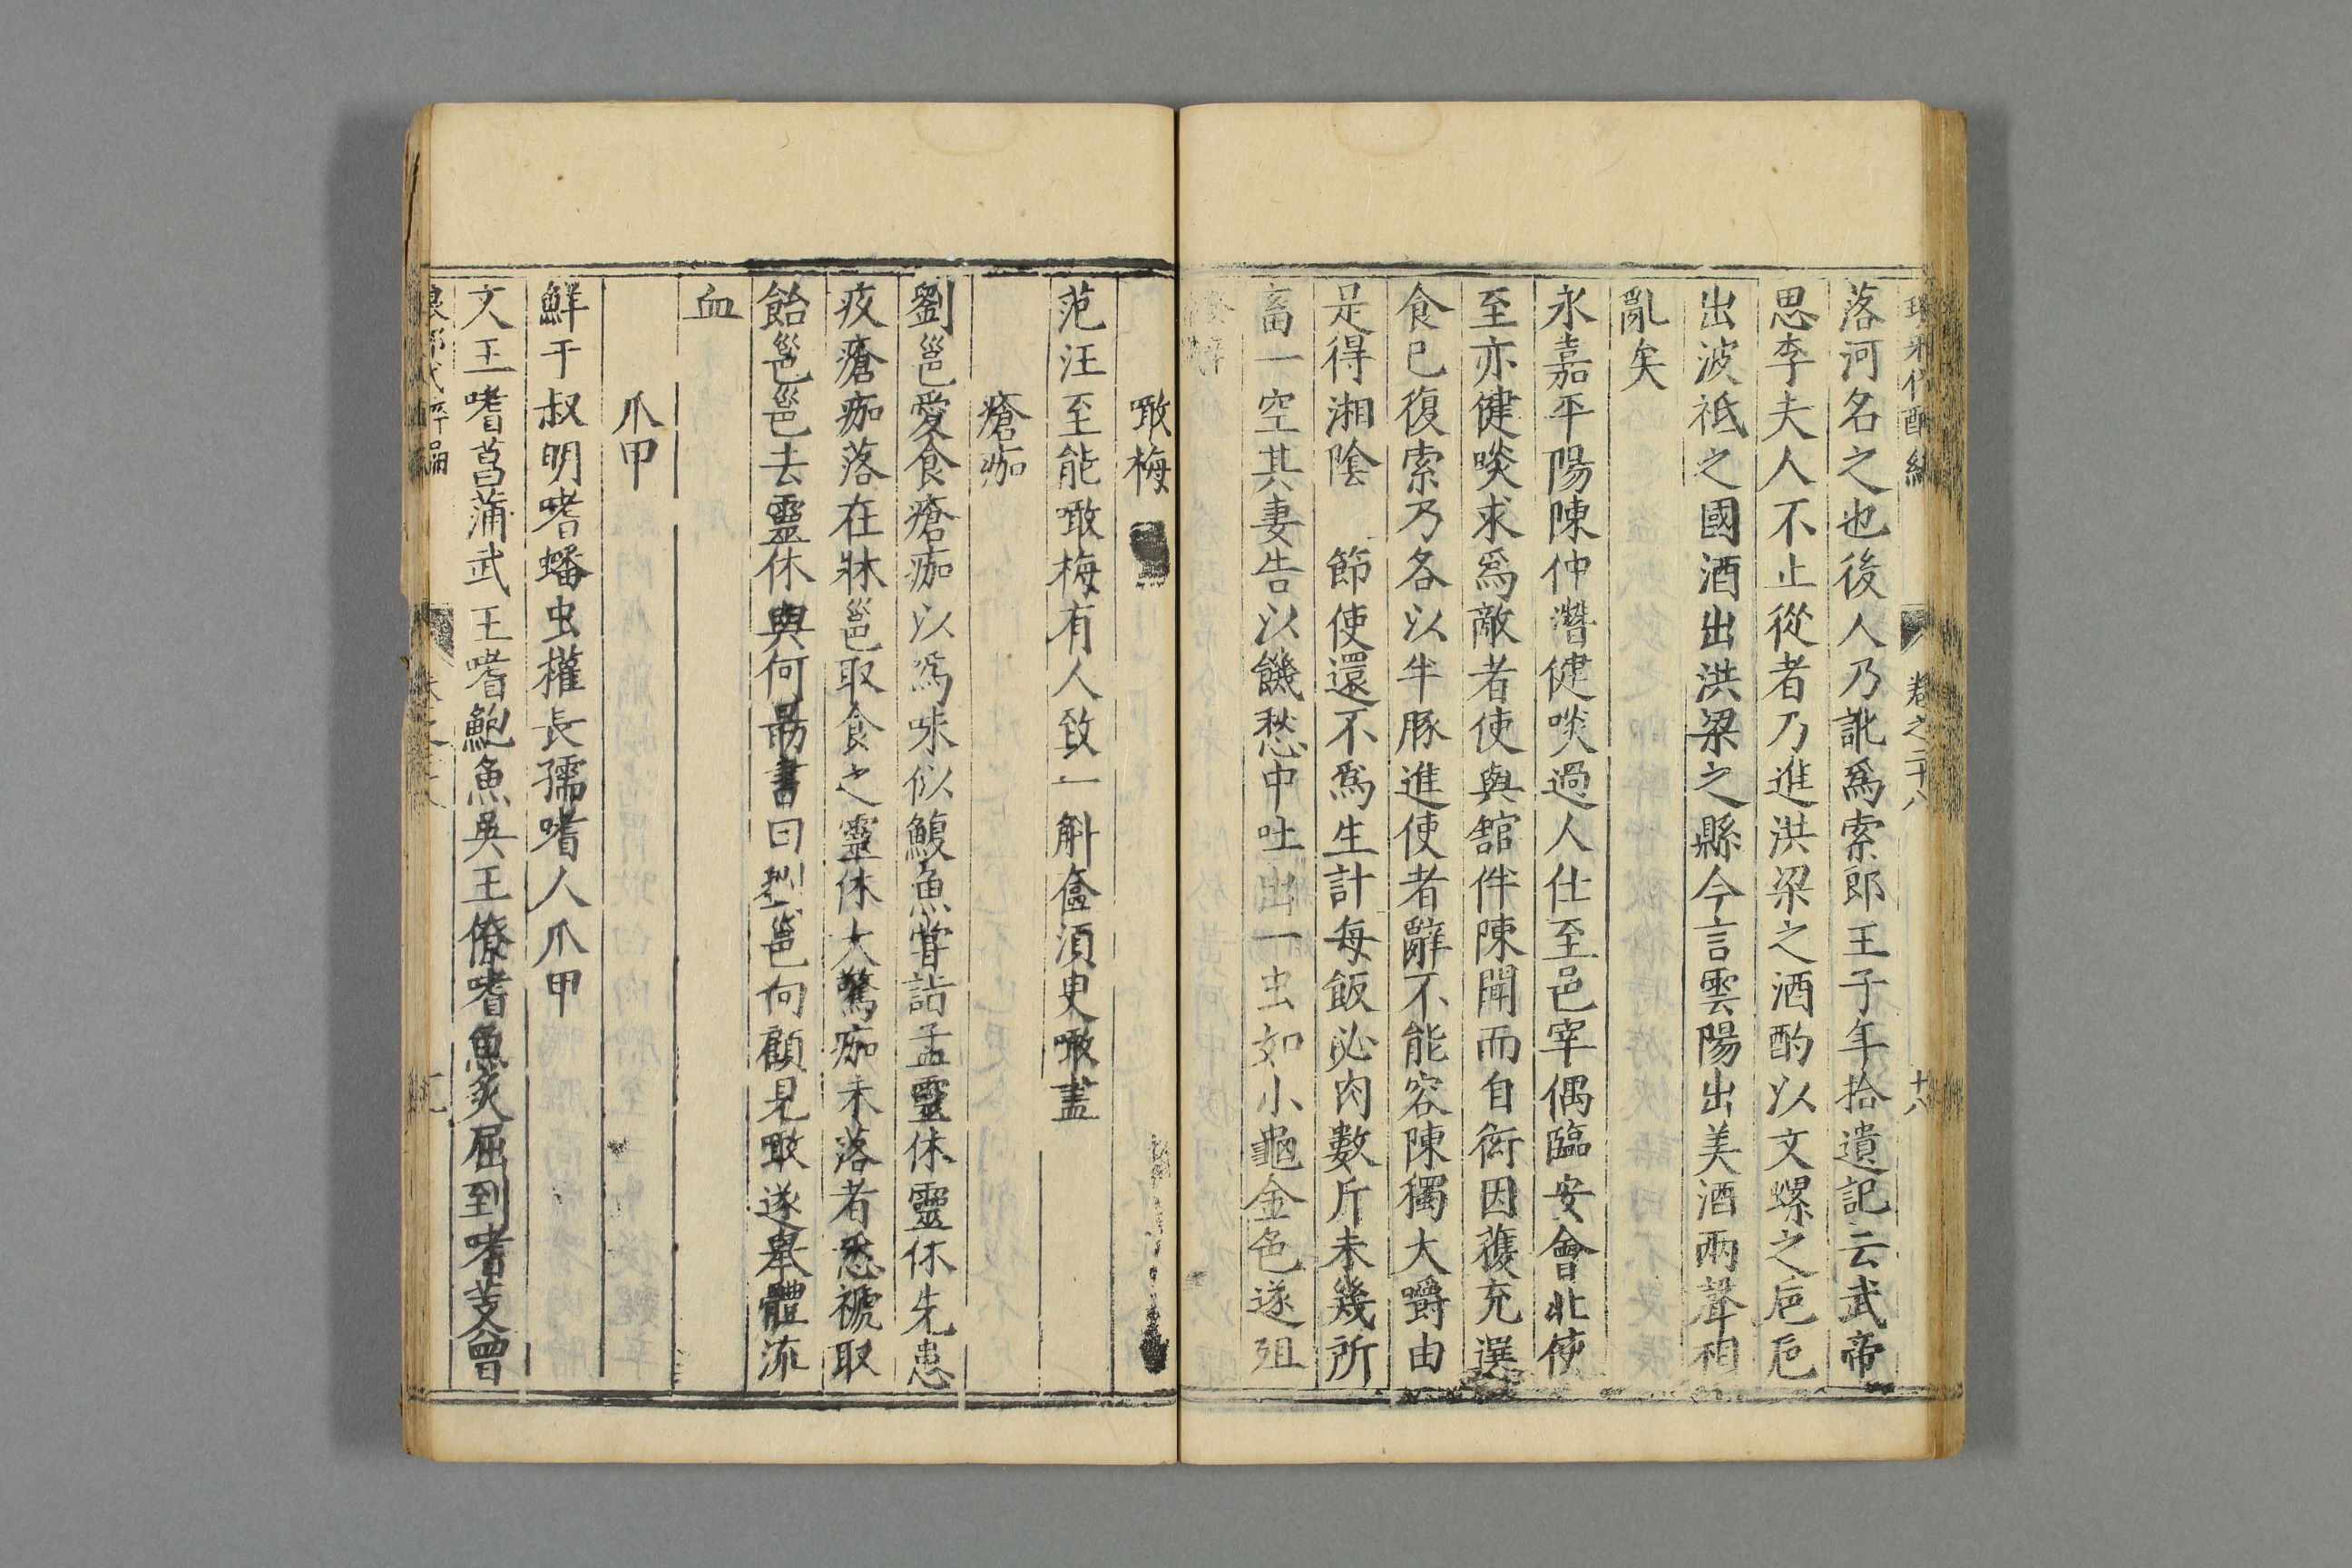 卷之二十八 十八
落河名之也後人乃訛爲索郎王子年拾遺記云武帝
思李夫人不止從者乃進洪梁之酒酌以文螺之巵巵
出波祗之國酒出洪梁之縣今言雲陽出美酒兩聲相
亂矣
永嘉平陽陳仲潛健啖過人仕至邑宰偶臨安會北使
至亦健啖求爲敵者使與舘伴陳聞而自衒因獲充選
食已復索乃各以牛豚進使者辭不能容陳獨大嚼由
是得湘陰 節使還不爲生計每飯必肉數斤未幾所
畜一空其妻告以饑愁中吐出一虫如小龜金色遂殂
噉梅
范汪至能噉梅有人致一斛奩須臾噉盡
瘡痂
劉邕愛食瘡痂以爲味似鰒魚嘗詣孟靈休靈休先患
灾瘡痂落在牀邕取食之靈休大驚痂未落者悉褫取
飴邕邕去靈休與何勗書曰劉邕向顧見噉遂舉體流
血
爪甲
鮮于叔明嗜蟠虫權長孺嗜人爪甲
文王嗜菖蒲武王嗜鮑魚吳王僚嗜魚炙屈到嗜芰曾